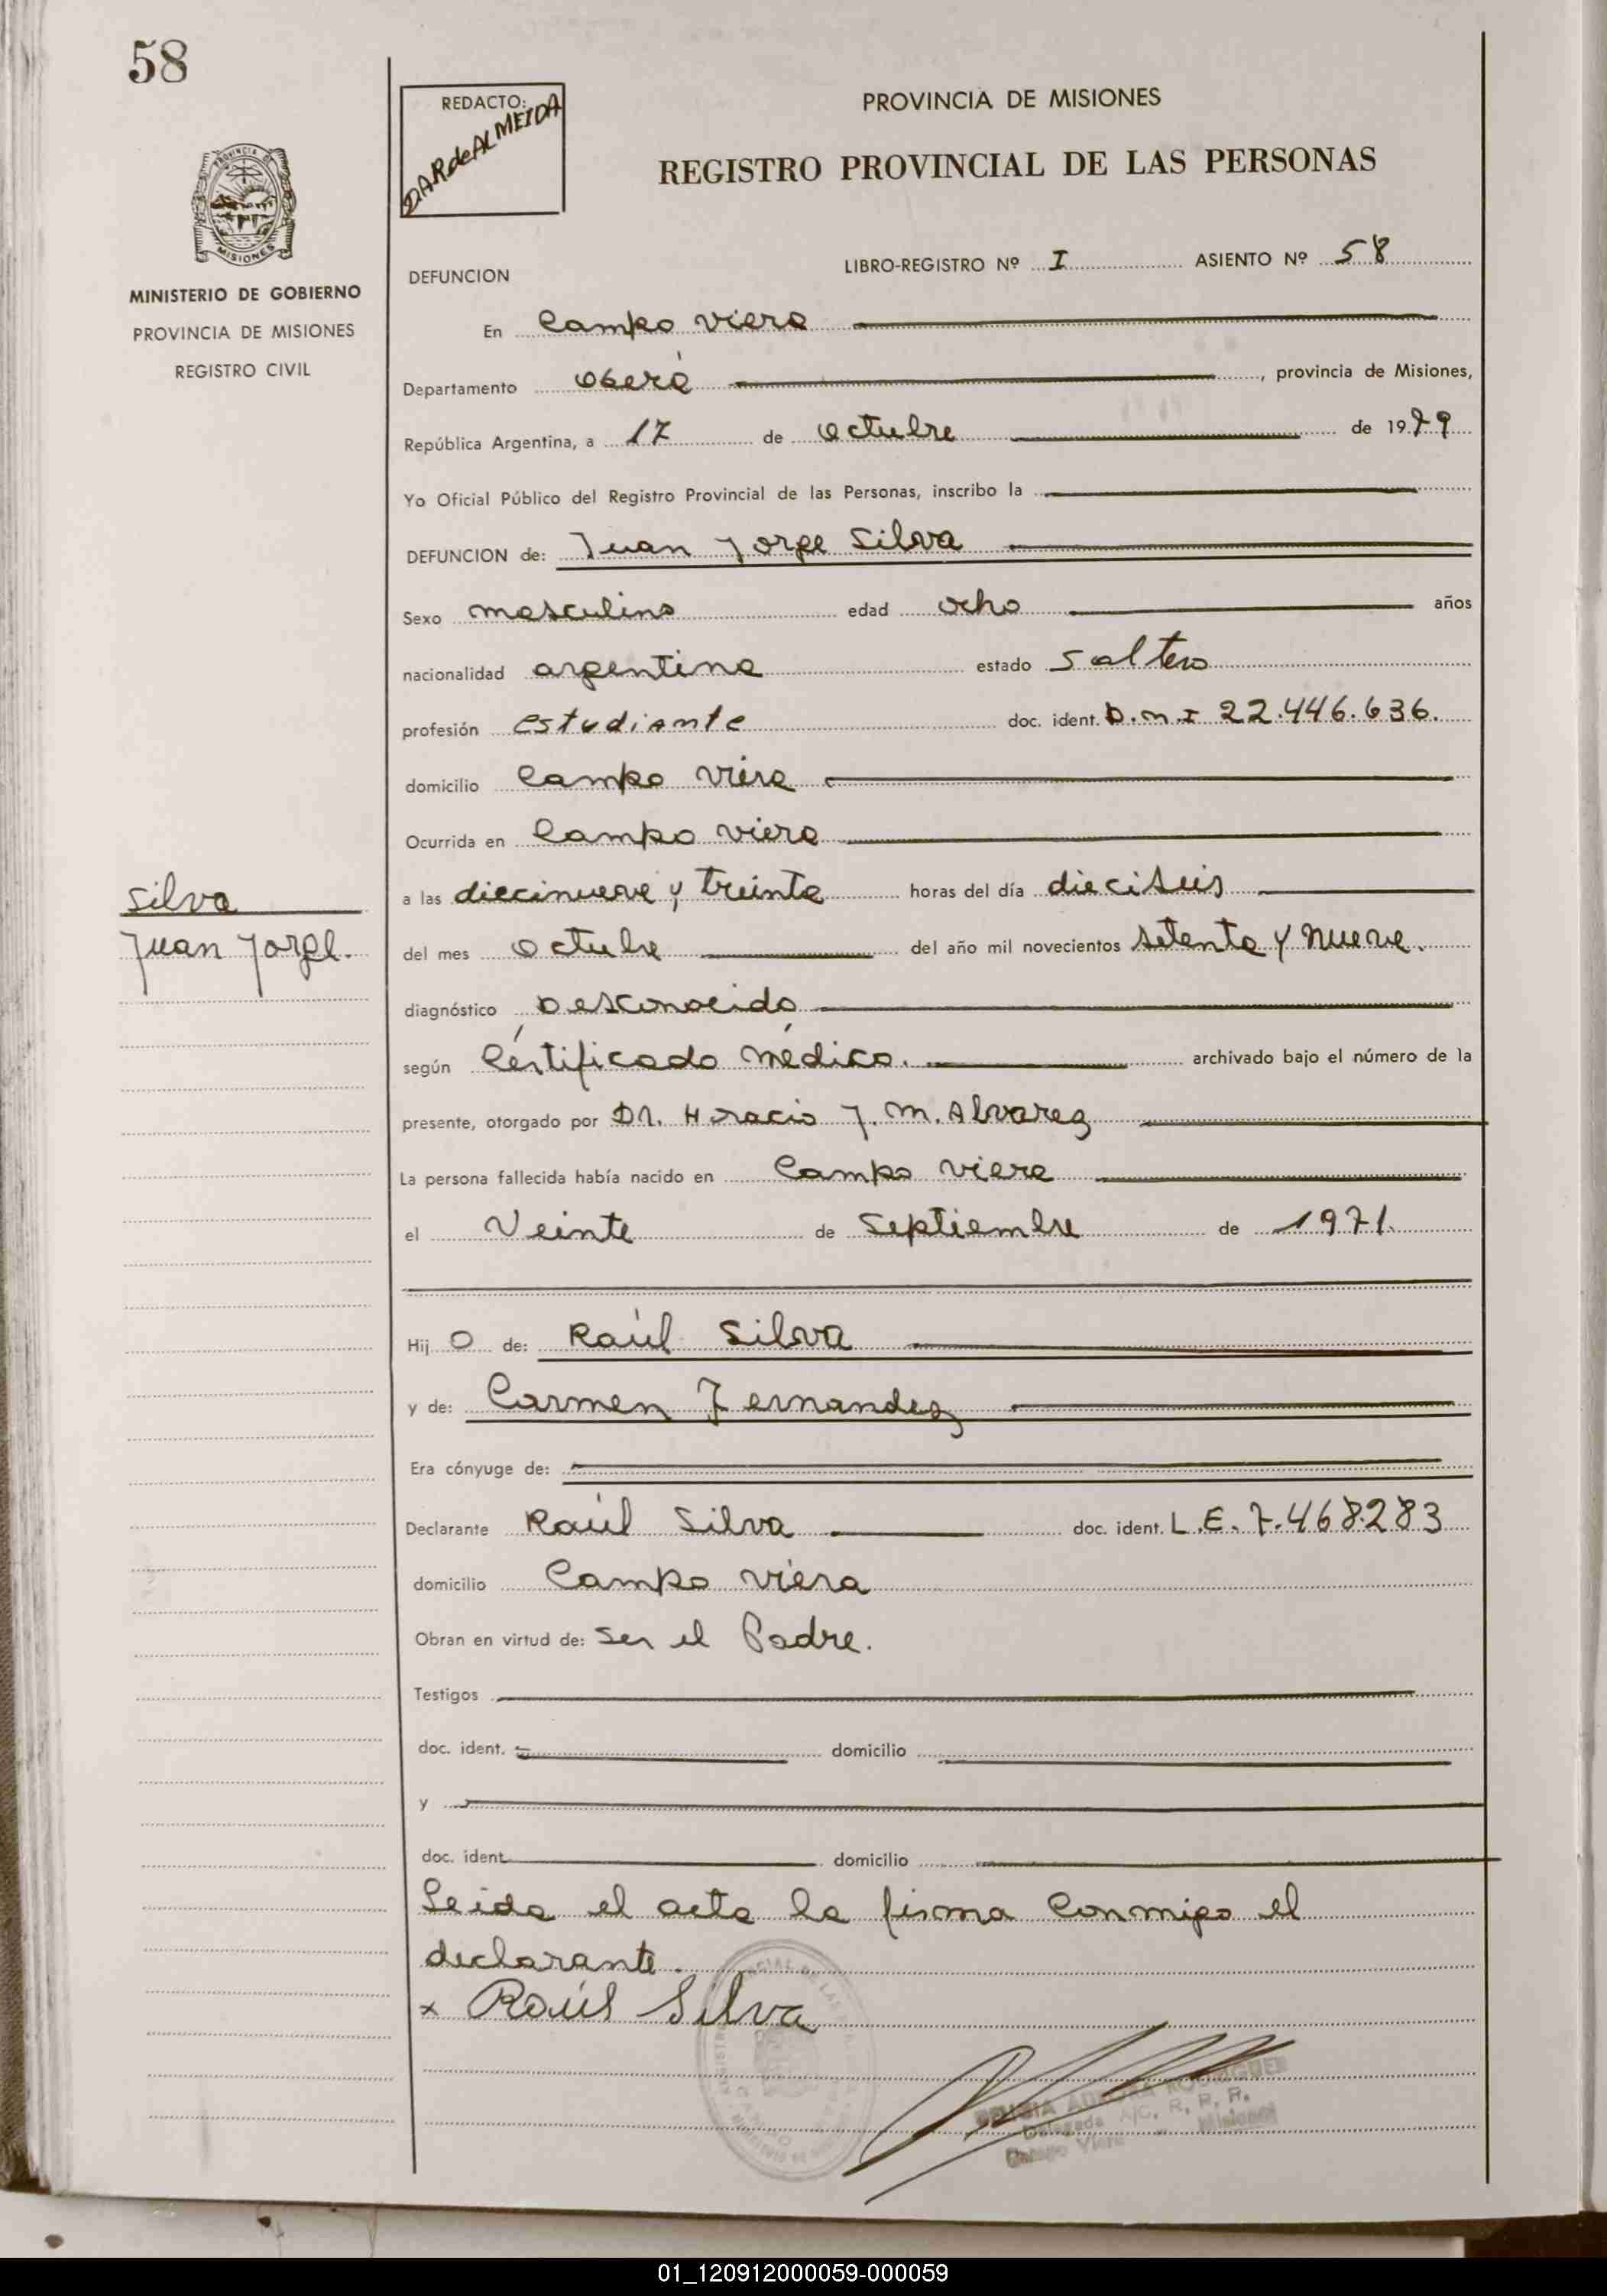 58
REDACTO:
DAR de ALMEIDA
PROVINCIA DE MISIONES
REGISTRO PROVINCIAL DE LAS PERSONAS
PROVINCIA DE
MISIONES
MINISTERIO DE GOBIERNO
PROVINCIA DE MISIONES
REGISTRO CIVIL
LIBRO-REGISTRO Nº I ASIENTO Nº 58
DEFUNCION
En Campo Viera
Departamento Oberá, provincia de Misiones,
República Argentina, a 17 de Octubre de 1979
Yo Oficial Público del Registro Provincial de las Personas, inscribo la
DEFUNCION de: Juan Jorge Silva
Sexo masculino edad ocho años
nacionalidad argentina estado Soltero
profesión estudiante doc. ident. D.N.I 22.446.636.
domicilio Campo Viera
Ocurrida en Campo Viera
a las diecinueve y treinta horas del día dieciseis
del mes Octubre del año mil novecientos setenta y nueve.
Silva
Juan Jorge.
diagnóstico Desconocido
según Certificado médico. archivado bajo el número de la
presente, otorgado por Dr. Horacio J. M. Alvarez
La persona fallecida había nacido en Campo Viera
el Veinte de Septiembre de 1971.
Hij o de: Raúl Silva
y de: Carmen Fernandez
Era cónyuge de:
Declarante Raúl Silva doc. ident. L.E. 7.468.283
domicilio Campo Viera
Obran en virtud de: Ser el Padre.
Testigos
doc. ident. domicilio
y
doc. ident. domicilio
Leida el acta la firma conmigo el
declarante.
x Raúl Silva
Delegada A/C. R. P. P.
Campo Viera - Misiones
01_120912000059-000059